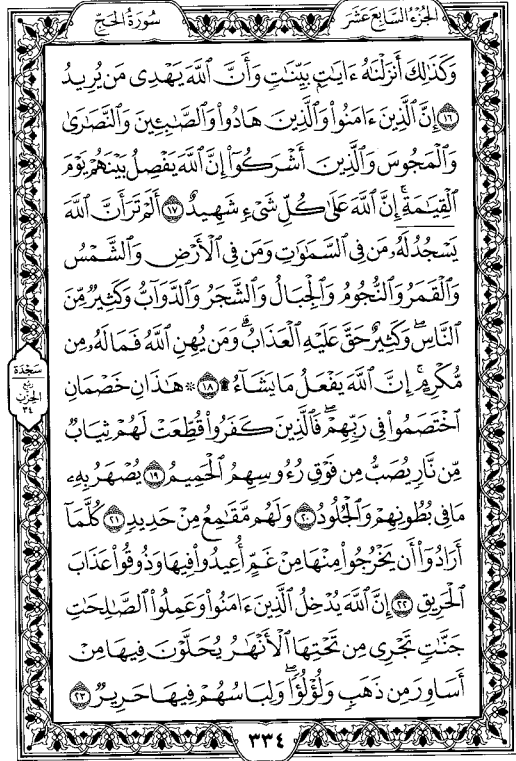 الجزء السابع عشر
سورة الحج
وَكَذَٰلِكَ أَنزَلْنَٰهُ ءَايَٰتٍۭ بَيِّنَٰتٍ وَأَنَّ ٱللَّهَ يَهْدِى مَن يُرِيدُ
١٦ إِنَّ ٱلَّذِينَ ءَامَنُوا۟ وَٱلَّذِينَ هَادُوا۟ وَٱلصَّٰبِـِٔينَ وَٱلنَّصَٰرَىٰ
وَٱلْمَجُوسَ وَٱلَّذِينَ أَشْرَكُوٓا۟ إِنَّ ٱللَّهَ يَفْصِلُ بَيْنَهُمْ يَوْمَ
ٱلْقِيَٰمَةِ ۚ إِنَّ ٱللَّهَ عَلَىٰ كُلِّ شَىْءٍ شَهِيدٌ ١٧ أَلَمْ تَرَ أَنَّ ٱللَّهَ
يَسْجُدُ لَهُۥ مَن فِى ٱلسَّمَٰوَٰتِ وَمَن فِى ٱلْأَرْضِ وَٱلشَّمْسُ
وَٱلْقَمَرُ وَٱلنُّجُومُ وَٱلْجِبَالُ وَٱلشَّجَرُ وَٱلدَّوَآبُّ وَكَثِيرٌ مِّنَ
ٱلنَّاسِ ۖ وَكَثِيرٌ حَقَّ عَلَيْهِ ٱلْعَذَابُ ۗ وَمَن يُهِنِ ٱللَّهُ فَمَا لَهُۥ مِن
مُّكْرِمٍ ۚ إِنَّ ٱللَّهَ يَفْعَلُ مَا يَشَآءُ ۩ ١٨ ۞ هَٰذَانِ خَصْمَانِ
ٱخْتَصَمُوا۟ فِى رَبِّهِمْ ۖ فَٱلَّذِينَ كَفَرُوا۟ قُطِّعَتْ لَهُمْ ثِيَابٌ
مِّن نَّارٍ يُصَبُّ مِن فَوْقِ رُءُوسِهِمُ ٱلْحَمِيمُ ١٩ يُصْهَرُ بِهِۦ
مَا فِى بُطُونِهِمْ وَٱلْجُلُودُ ٢٠ وَلَهُم مَّقَٰمِعُ مِنْ حَدِيدٍ ٢١ كُلَّمَآ
أَرَادُوٓا۟ أَن يَخْرُجُوا۟ مِنْهَا مِنْ غَمٍّ أُعِيدُوا۟ فِيهَا وَذُوقُوا۟ عَذَابَ
ٱلْحَرِيقِ ٢٢ إِنَّ ٱللَّهَ يُدْخِلُ ٱلَّذِينَ ءَامَنُوا۟ وَعَمِلُوا۟ ٱلصَّٰلِحَٰتِ
جَنَّٰتٍ تَجْرِى مِن تَحْتِهَا ٱلْأَنْهَٰرُ يُحَلَّوْنَ فِيهَا مِنْ
أَسَاوِرَ مِن ذَهَبٍ وَلُؤْلُؤًا ۖ وَلِبَاسُهُمْ فِيهَا حَرِيرٌ ٢٣
سجدة
ربع
الحزب
٣٤
٣٣٤